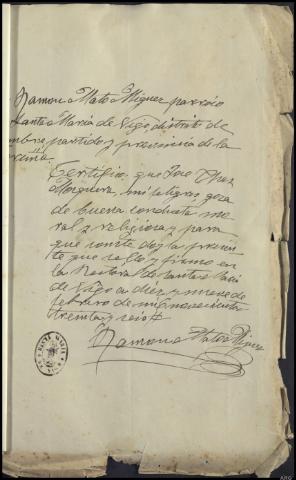 Ramon Mato Miguez parroco
Santa Maria de Vigo distrito de
mbre partido y provincia de la
ruña
Certifico, que Jose
Mosquera, mi feligres goza
de buena conducta mo-
ral y religiosa y para
que conste doy la presen-
te que sello y firmo en
la Rectoral de Santa Maria
de Vigo a diez y nueve de
febrero de mil novecientos
treinta y seis
Ramon Mato Miguez
SANTA MARIA